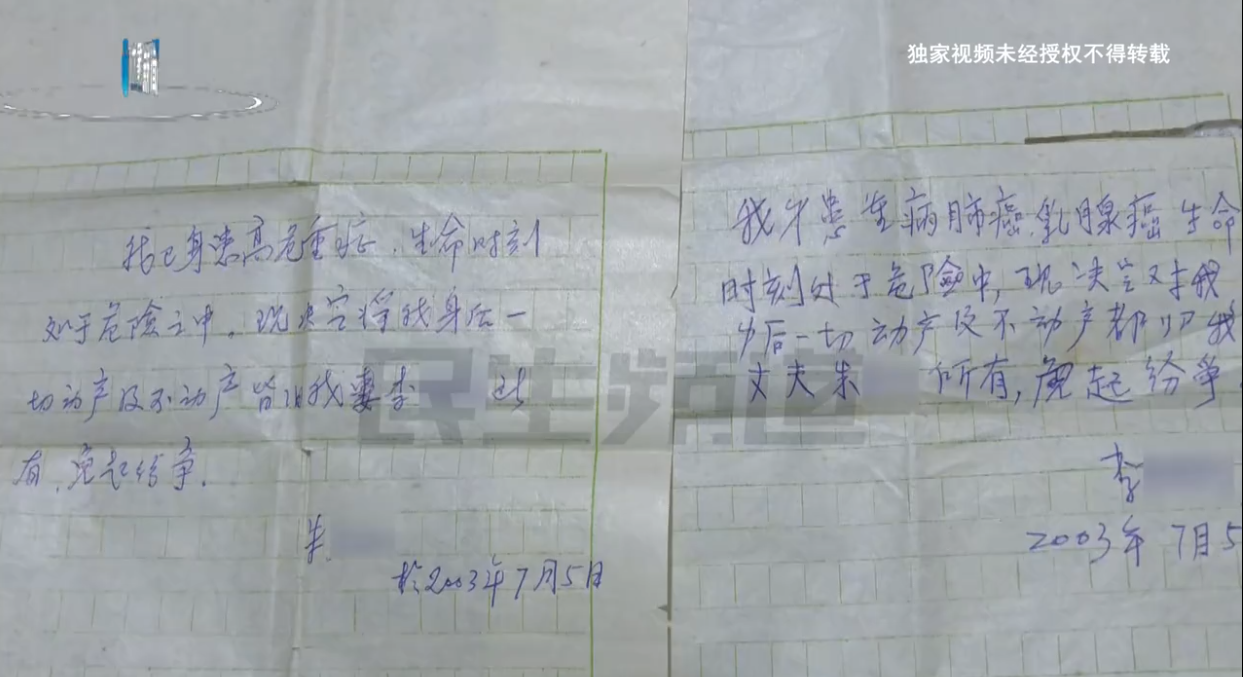 独家视频未经授权不得转载
我已身患高危重症，生命时刻
处于危险之中。现决定将我身后一
切动产及不动产皆归我妻李 所
有，免起纷争。
朱
于2003年7月5日
我身患重病肺癌.乳腺癌 生命
时刻处于危险中，现决定对我
身后一切动产及不动产都归我
丈夫朱 所有，免起纷争
李
2003年 7月5
民生频道